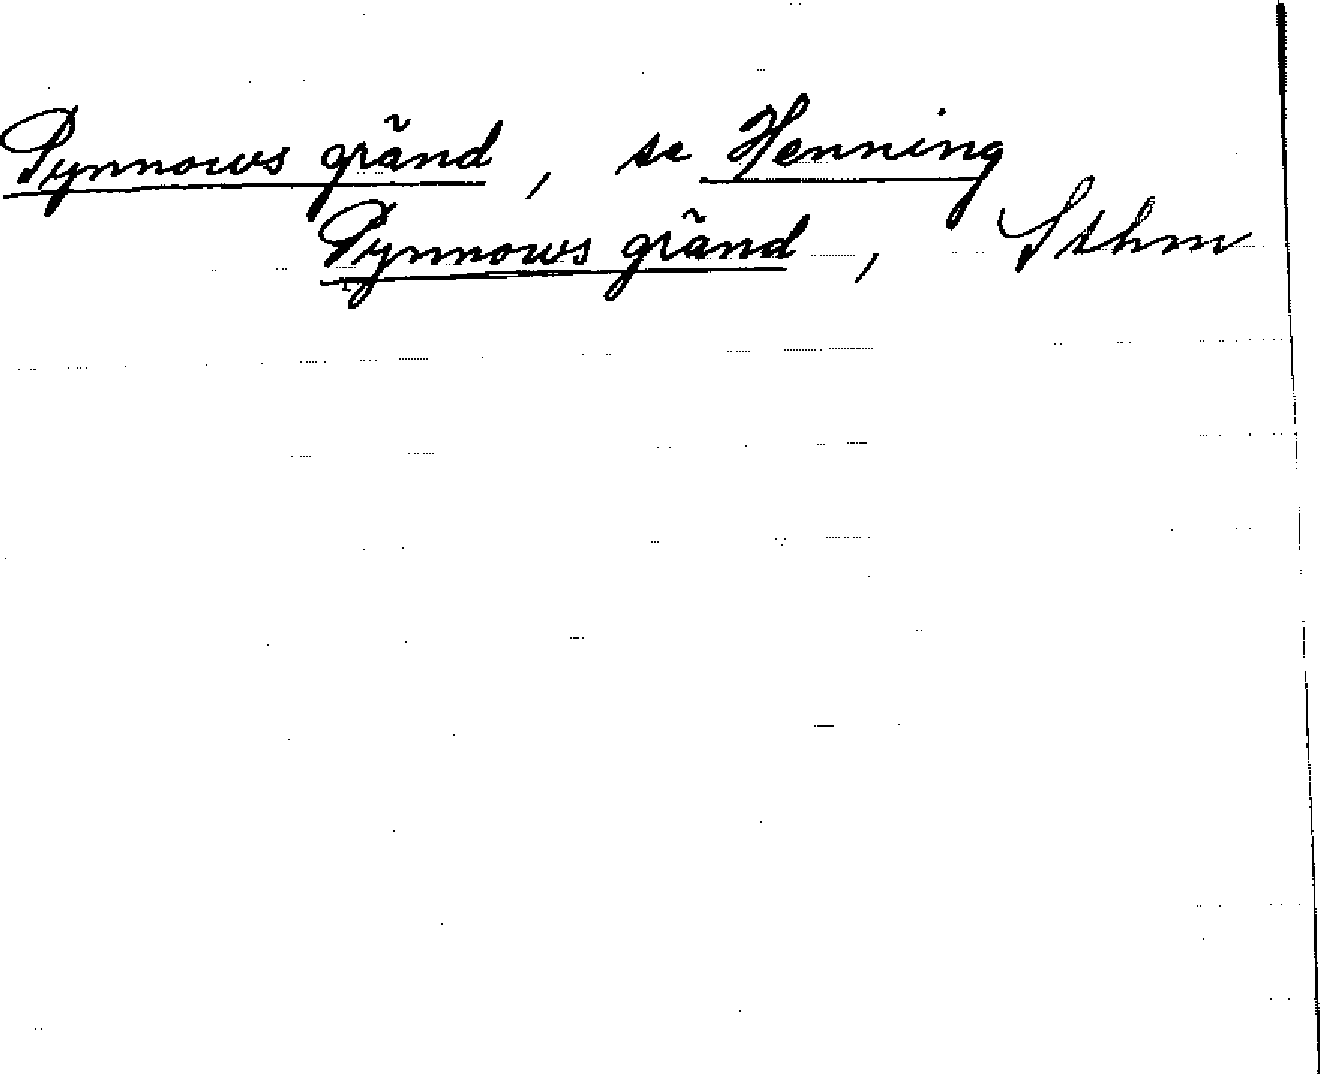 Pynnows gränd, se Henning
Pynnows gränd, Sthm